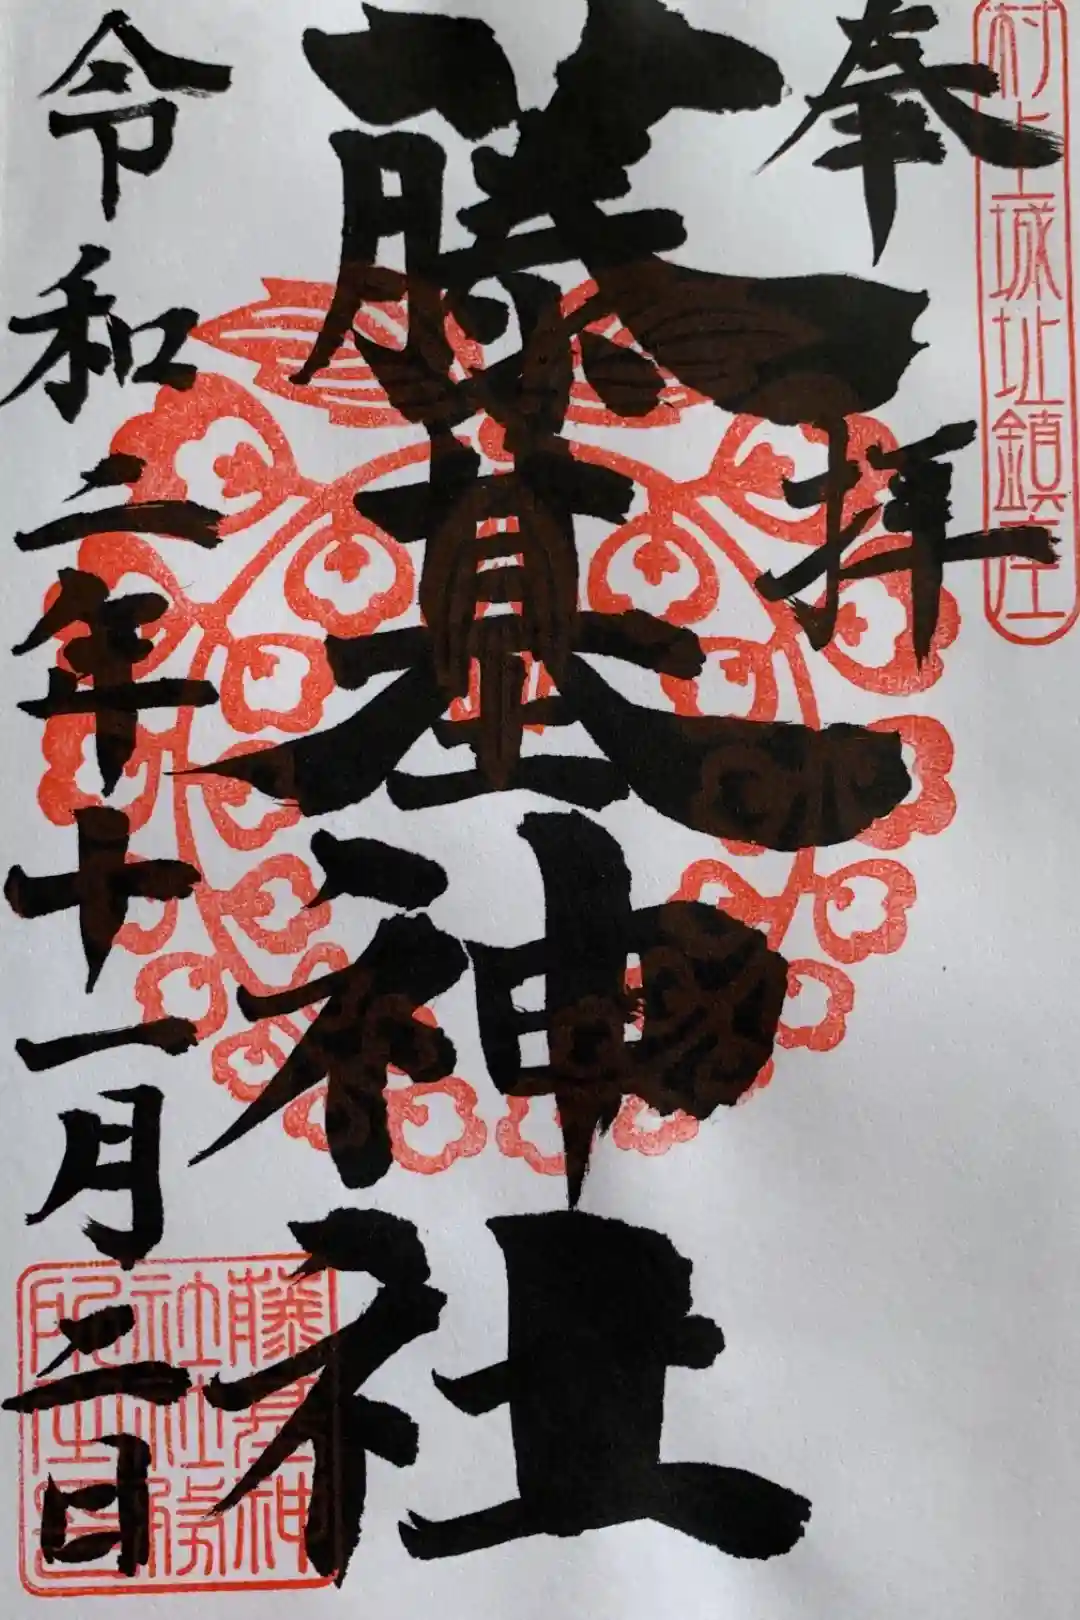 村上城址鎮座
奉拝
藤基神社
令和二年十一月二日
藤基神
社社務
所之印